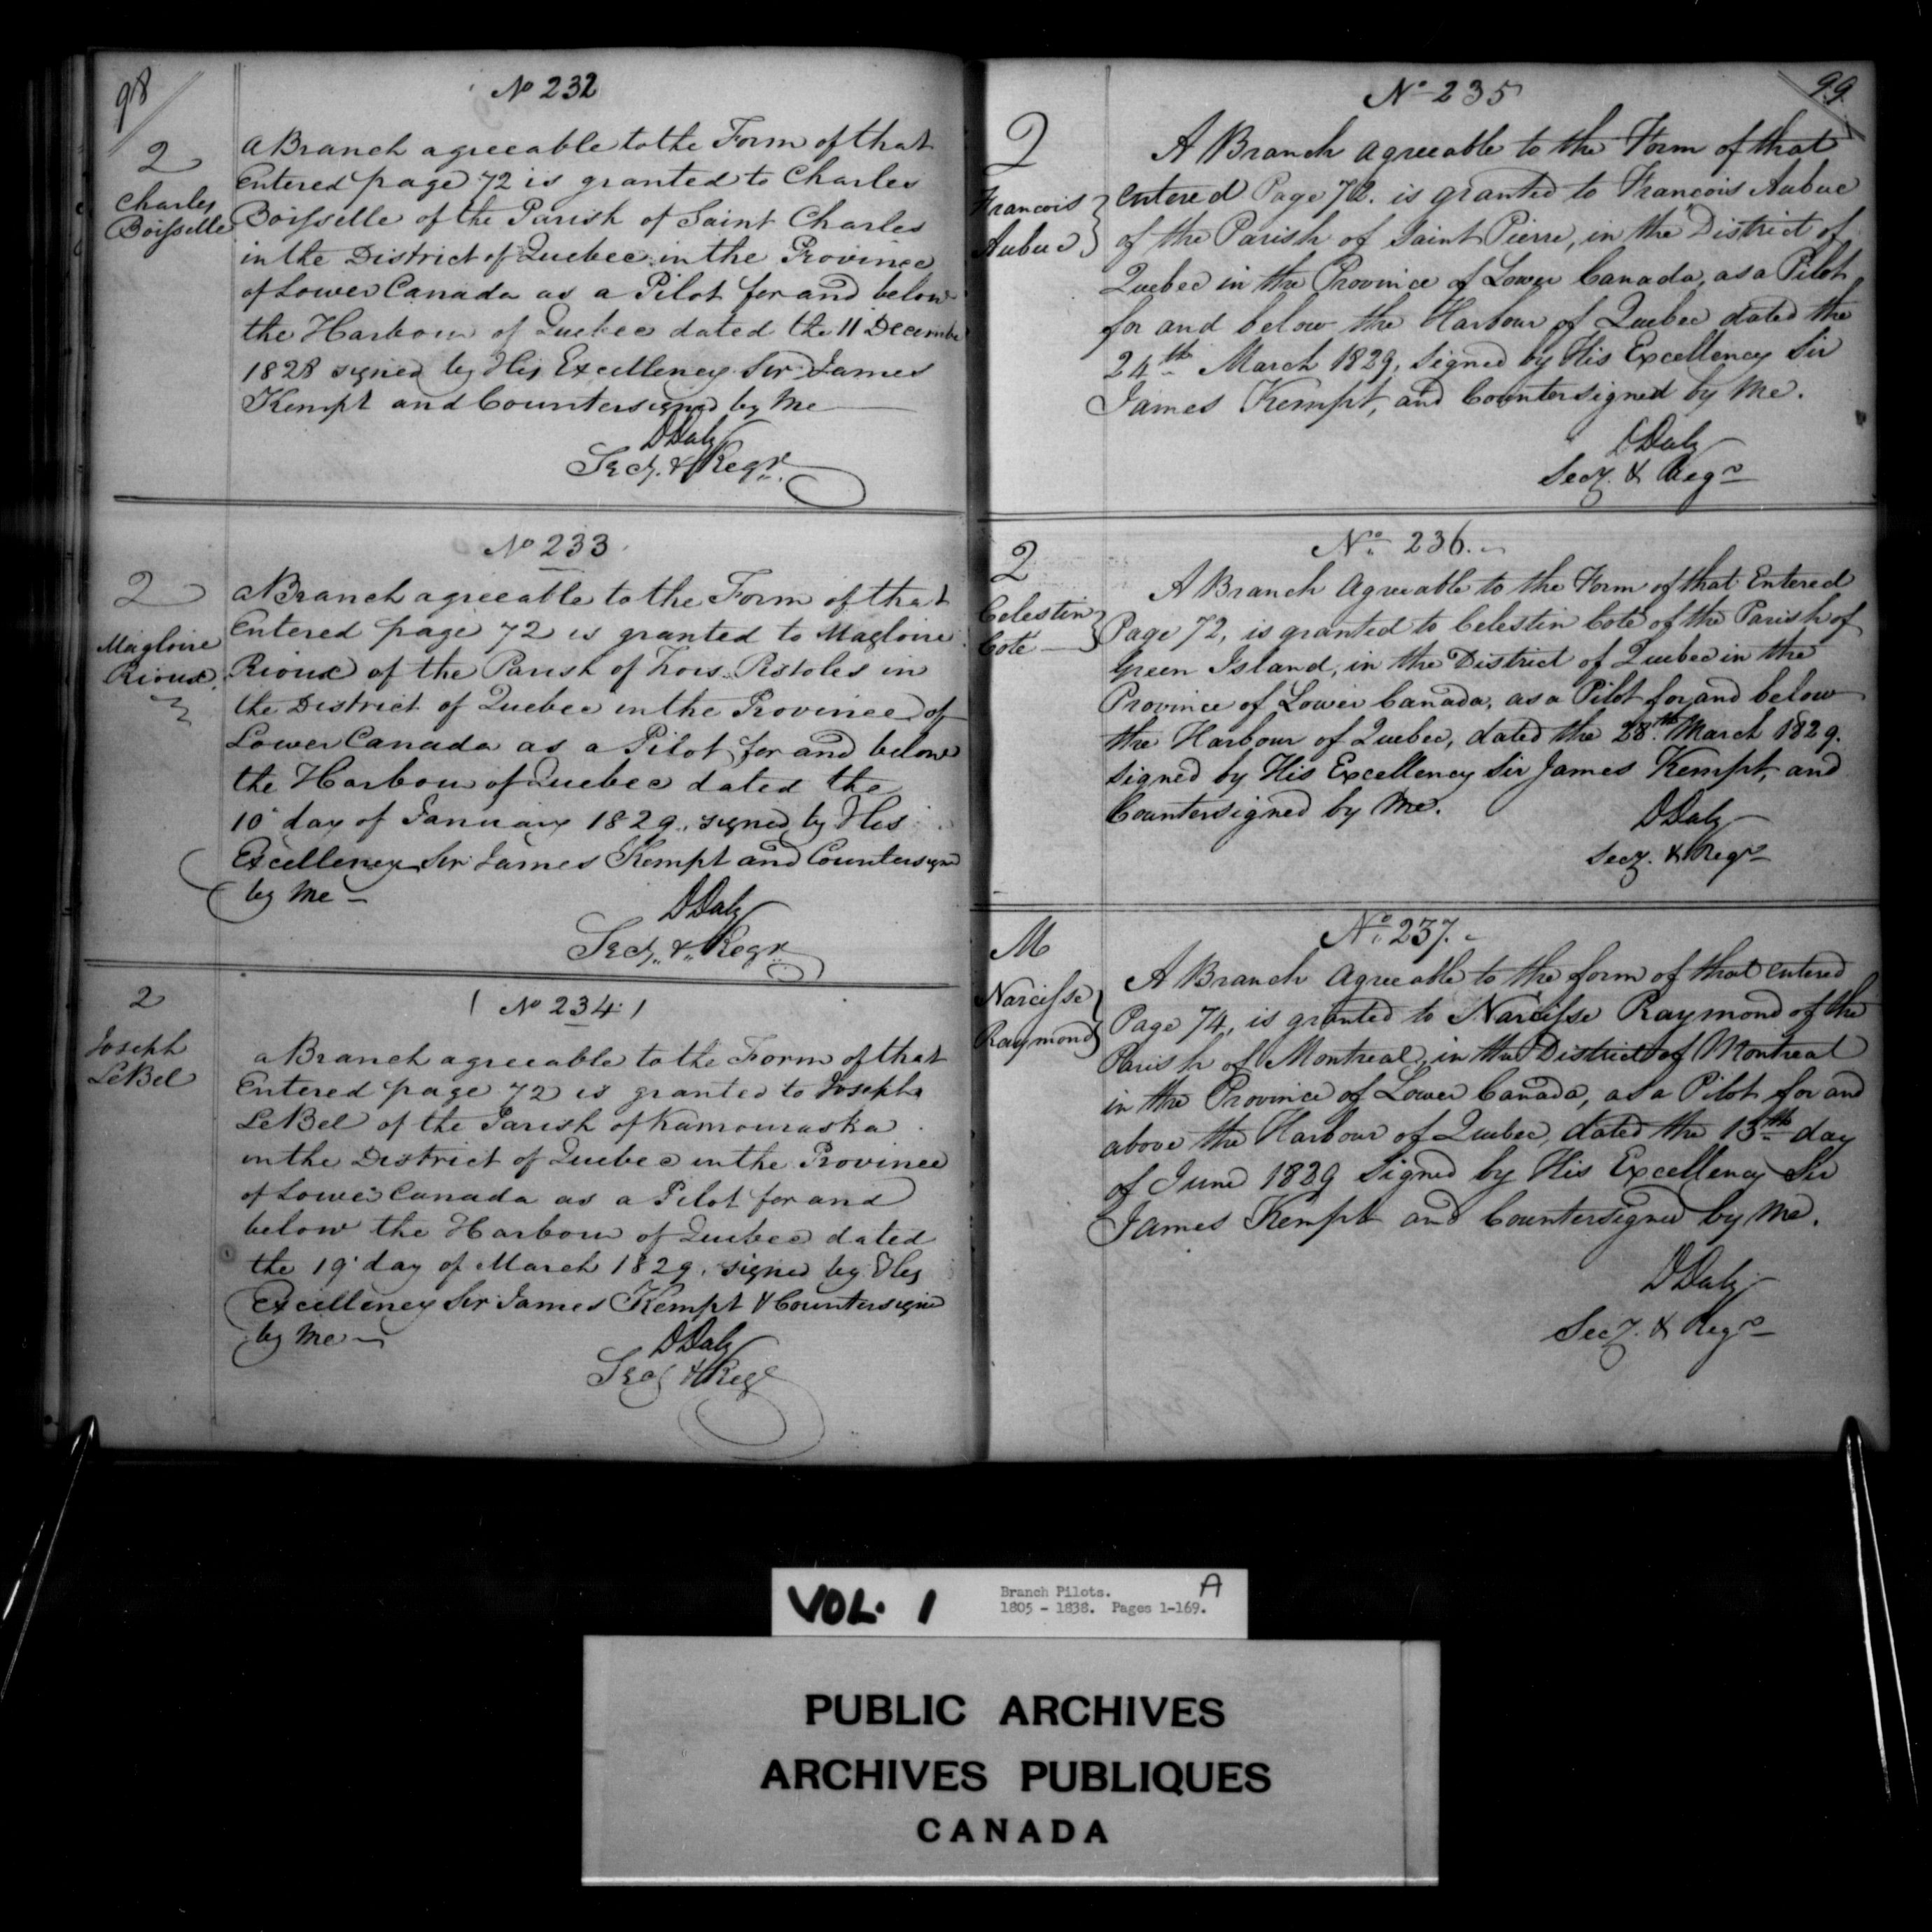 98
No 232
2
Charles
Boifselle
a Branch agreeable to the Form of that
Entered page 72 is granted to Charles
Boifselle of the Parish of Saint Charles
in the District of Quebec in the Province
of Lower Canada as a Pilot for and below
the Harbour of Quebec dated the 11 Decembe
1828 signed by His Excellency Sir James
Kempt and Countersigned by Me
DDaly
Secy. & Regr.
No 233
2
Magloire
Rioux
a Branch agreeable to the Form of that
Entered page 72 is granted to Magloire
Rioux of the Parish of Trois Pistoles in
the District of Quebec in the Province of
Lower Canada as a Pilot for and below
the Harbour of Quebec dated the
10 day of January 1829, signed by His
Excellency Sir James Kempt and Countersigned
by Me
DDaly
Secy. & Regr
No 234
2
Joseph
LeBel
a Branch agreeable to the Form of that
Entered page 72 is granted to Joseph
LeBel of the Parish of Kamouraska
in the District of Quebec in the Province
of Lower Canada as a Pilot for and
below the Harbour of Quebec dated
the 19 day of March 1829. signed by His
Excellency Sir James Kempt & Countersigned
by Me
DDaly
Secy & Regr
99
No 235
2
Francois
Aubue
A Branch agreeable to the Form of that
entered Page 72. is granted to Francois Aubue
of the Parish of Saint Pierre, in the District of
Quebec in the Province of Lower Canada, as a Pilot
for and below the Harbour of Quebec dated the
24th March 1829, signed by His Excellency Sir
James Kempt, and Countersigned by Me.
DDaly
Secy. & Regr
No 236.
2
Celestin
Coté
A Branch Agreeable to the Form of that Entered
Page 72, is granted to Celestin Coté of the Parish of
Green Island, in the District of Quebec in the
Province of Lower Canada, as a Pilot for and below
the Harbour of Quebec, dated the 28th March 1829.
signed by His Excellency Sir James Kempt, and
Countersigned by Me.
DDaly
Secy. & Regr
No 237.
M
Narcifse
Raymond
A Branch Agreeable to the form of that entered
Page 74, is granted to Narcifse Raymond of the
Parish of Montreal, in the District of Montreal
in the Province of Lower Canada, as a Pilot for and
above the Harbour of Quebec, dated the 13th day
of June 1829 signed by His Excellency Sir
James Kempt and Countersigned by Me.
DDaly
Secy. & Regr
VOL. 1
Branch Pilots.
1805 - 1838. Pages 1-169.
A
PUBLIC ARCHIVES
ARCHIVES PUBLIQUES
CANADA